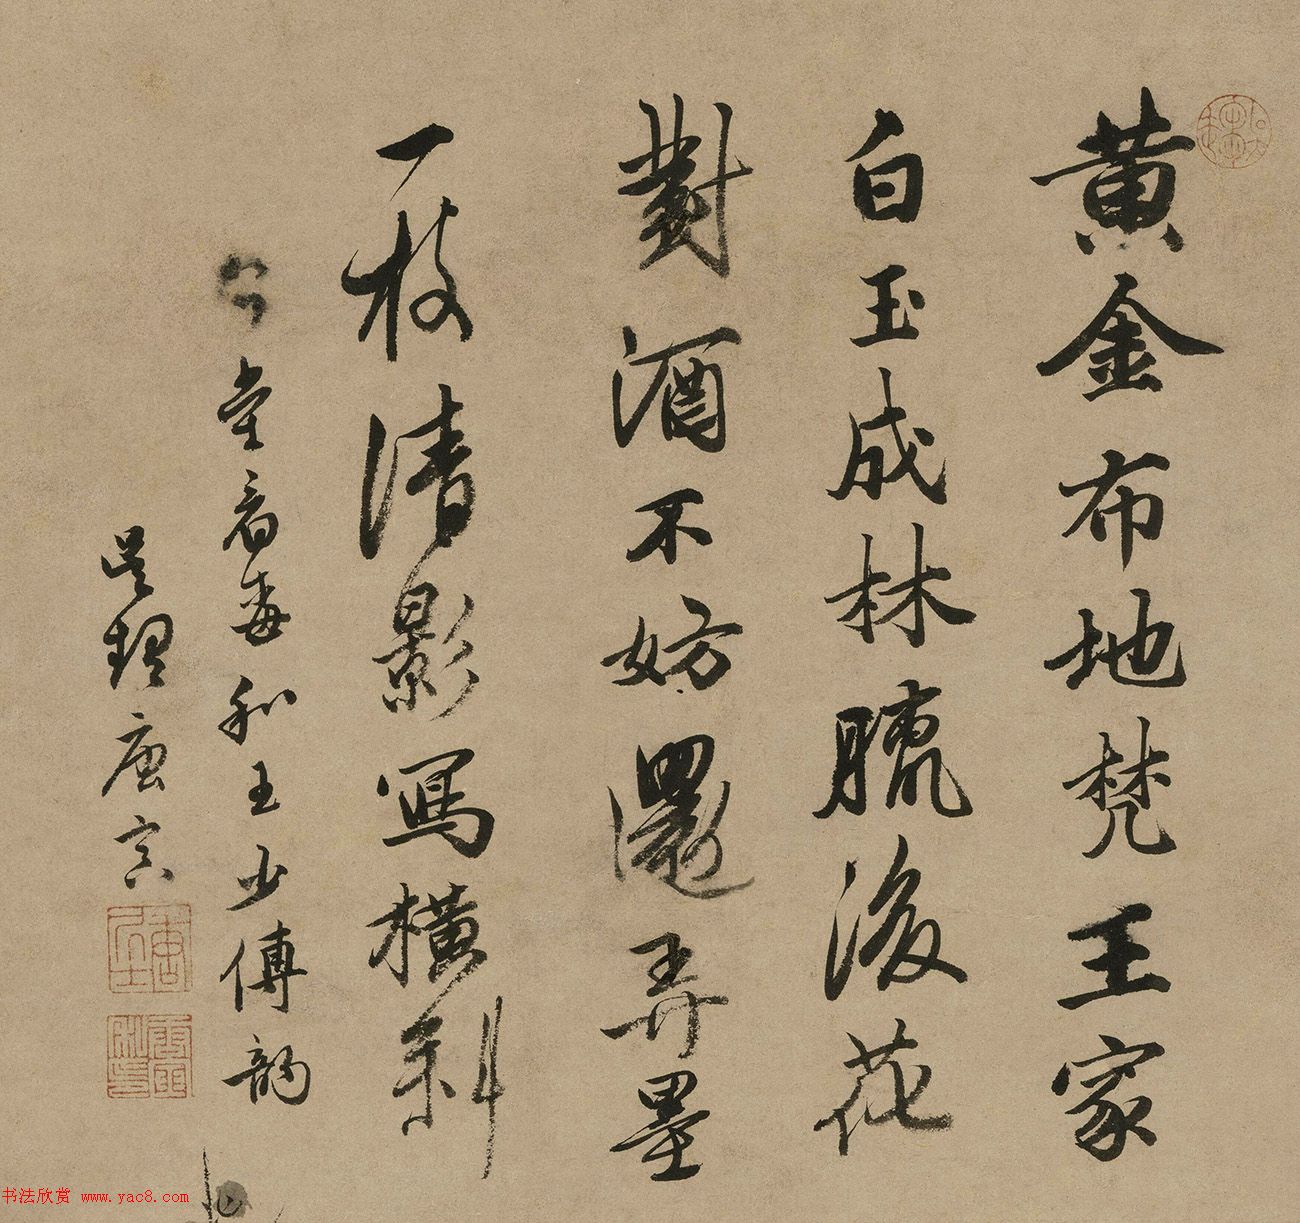 黃金布地梵王家
白玉成林臘後花
對酒不妨還弄墨
一枝清影寫橫斜
堂看梅和王少傅韵
吳趨唐寅
唐居士
书法欣赏 www.yac8.com